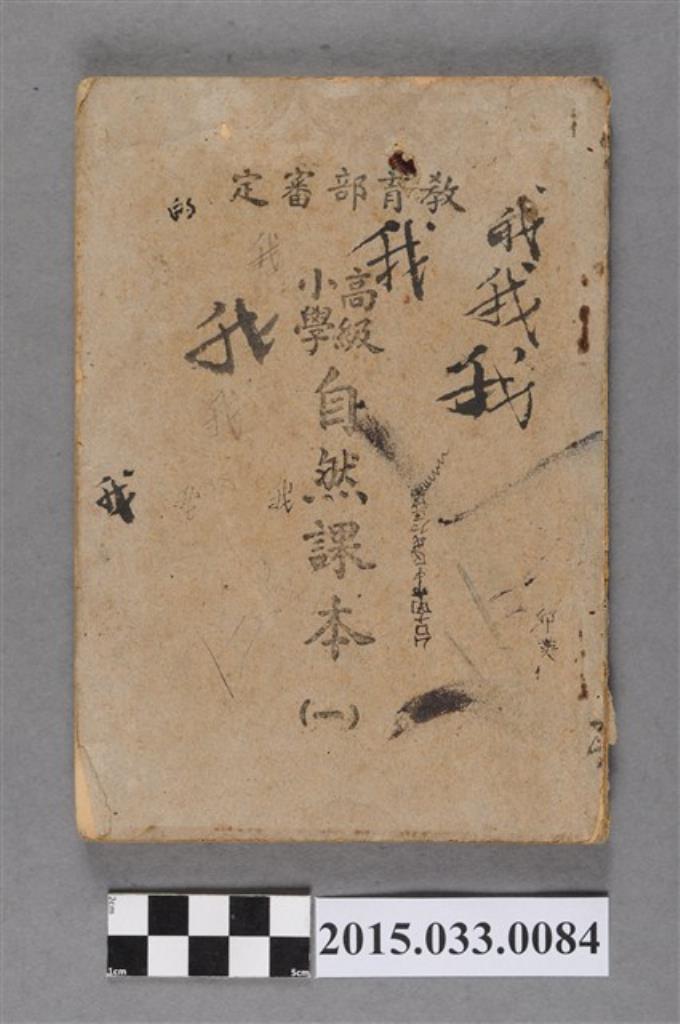 教育部審定
高級
小學
自然課本
(一)
我
我
我
我
我
我
我
我
的
2cm
1cm
5cm
2015.033.0084